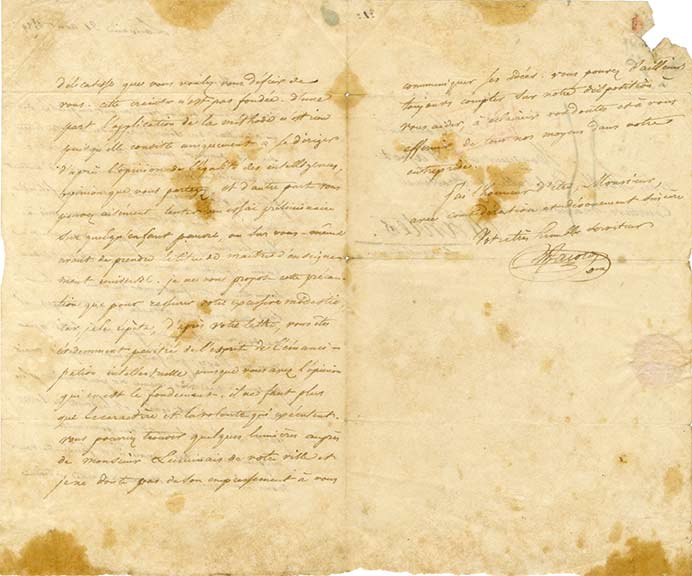 délicatesse que vous voulez vous défier de
vous. cette crainte n'est pas fondée. d'une
part l'application de la méthode n'est rien
puisqu'elle consiste uniquement à se diriger
d'après l'opinion de l'égalité des intelligences,
opinion que vous partagez et d'autre part vous
pouvez aisément tenter un essai préliminaire
sur quelqu'enfant pauvre, ou sur vous-même
avant de prendre le titre de maître d'enseigne-
ment universel. je ne vous propose cette précau-
tion que pour rassurer votre excessive modestie
car, je le répète, d'après votre lettre, vous êtes
évidemment pénétré de l'esprit de l'émanci-
pation intellectuelle puisque vous avez l'opinion
qui en est le fondement. il ne faut plus
que le caractère et la volonté qui exécutent.
vous pourriez trouver quelques lumières auprès
de monsieur de votre ville et
je ne doute pas de son empressement à vous
communiquer ses idées. vous pouvez d'ailleurs
toujours compter sur notre disposition à
vous aider à éclaircir vos doutes et à vous
affermir de tous nos moyens dans votre
entreprise.
J'ai l'honneur d'être, Monsieur,
avec considération et dévouement sincère
Votre très humble serviteur
Jacotot